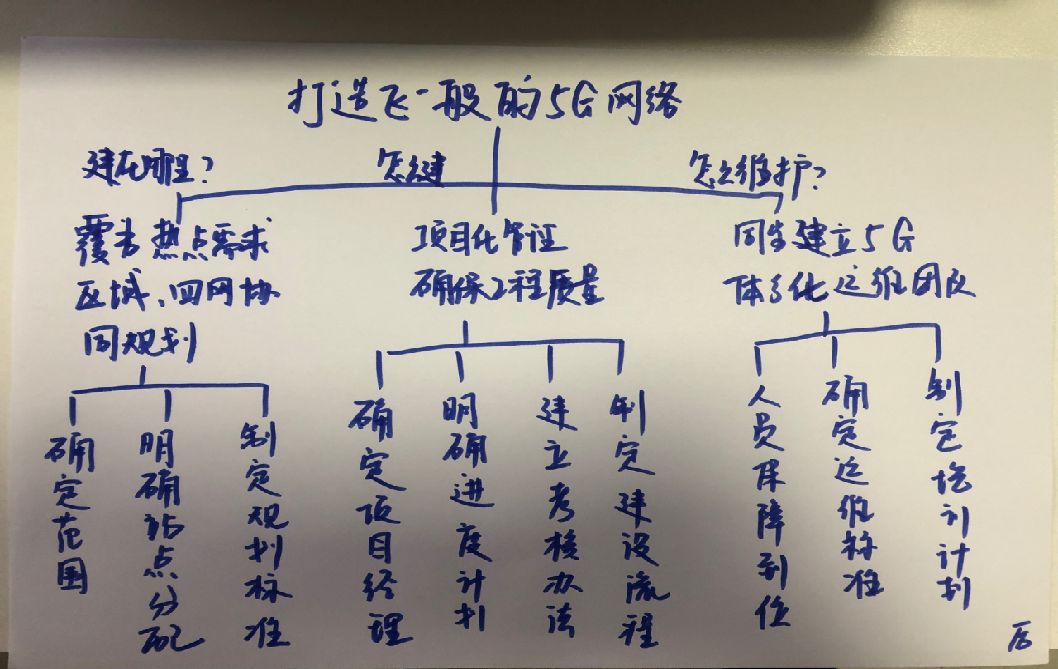 打造飞一般的5G网络
建在哪里?
怎么建
怎么维护?
覆盖热点需求
区域、四网协
同规划
项目化管证
确保工程质量
同步建立5G
体系化运维团队
确定范围
明确站点分配
制定规划标准
确定项目经理
明确进度计划
建立考核办法
制定建设流程
人员保障到位
确定运维标准
制定培训计划